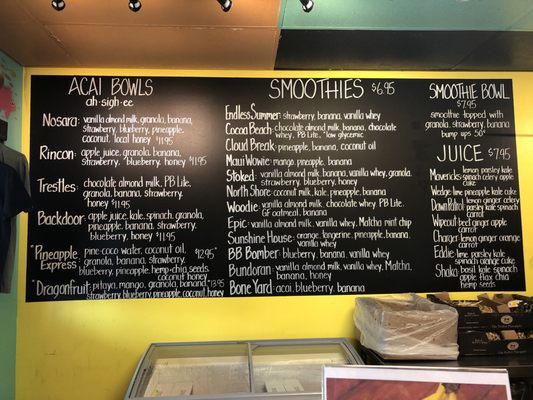 ACAI BOWLS
ah·sigh·ee
Nosara: vanilla almond milk, granola, banana,
strawberry, blueberry, pineapple,
coconut, local honey $11.95
Rincon: apple juice, granola, banana,
strawberry, blueberry, honey $11.95
Trestles: chocolate almond milk, PB Lite,
granola, banana, strawberry,
honey $11.95
Backdoor: apple juice, kale, spinach, granola,
pineapple, banana, strawberry,
blueberry, honey $11.95
*Pineapple Express: pine-coco water, coconut oil, $12.95*
granola, banana, strawberry,
blueberry, pineapple, hemp-chia seeds,
coconut, honey
*Dragonfruit: pitaya, mango, granola, banana $13.95
strawberry, blueberry, pineapple, coconut, honey
SMOOTHIES $6.95
Endless Summer: strawberry, banana, vanilla whey
Cocoa Beach: chocolate almond milk, banana, chocolate
whey, PB Lite, *low glycemic
Cloud Break: pineapple, banana, coconut oil
Maui Wowie: mango, pineapple, banana
Stoked: vanilla almond milk, vanilla whey, granola,
strawberry, blueberry, honey
North Shore: coconut milk, kale, pineapple, banana
Woodie: vanilla almond milk, chocolate whey, PB Lite,
GF oatmeal, banana
Epic: vanilla almond milk, vanilla whey, Matcha, mint chip
Sunshine House: orange, tangerine, pineapple, banana,
vanilla whey
BB Bomber: blueberry, banana, vanilla whey
Bundoran: vanilla almond milk, vanilla whey, Matcha,
banana, honey
Bone Yard: acai, blueberry, banana
SMOOTHIE BOWL
$7.95
smoothie topped with
granola, strawberry, banana
bump ups 50¢
JUICE $7.95
Mavericks: lemon parsley kale
spinach celery apple
cuke
Wedge: lime pineapple kale cuke
Down Patrol: lemon ginger celery
parsley kale spinach
carrot
Wipeout: beet ginger apple
carrot
Charger: lemon ginger orange
carrot
Eddie: lime parsley kale
spinach orange cuke
Shaka: basil kale spinach
apple flax chia
hemp seeds